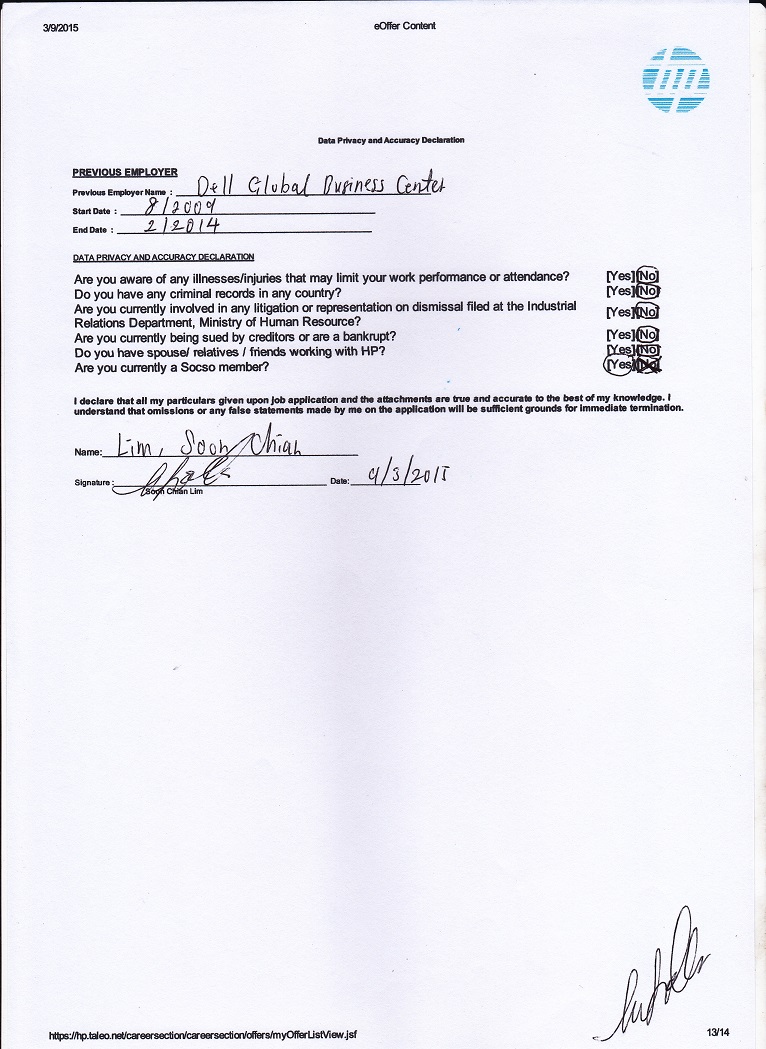 3/9/2015 eOffer Content
hp
Data Privacy and Accuracy Declaration
PREVIOUS EMPLOYER
Previous Employer Name : Dell Global Business Center
Start Date : 8/2009
End Date : 2/2014
DATA PRIVACY AND ACCURACY DECLARATION
Are you aware of any illnesses/injuries that may limit your work performance or attendance? [Yes][No]
Do you have any criminal records in any country? [Yes][No]
Are you currently involved in any litigation or representation on dismissal filed at the Industrial [Yes][No]
Relations Department, Ministry of Human Resource?
Are you currently being sued by creditors or are a bankrupt? [Yes][No]
Do you have spouse/ relatives / friends working with HP? [Yes][No]
Are you currently a Socso member? [Yes][No]
I declare that all my particulars given upon job application and the attachments are true and accurate to the best of my knowledge. I
understand that omissions or any false statements made by me on the application will be sufficient grounds for immediate termination.
Name: Lim, Soon Chian
Signature : Date: 9/3/2015
Soon Chian Lim
https://hp.taleo.net/careersection/careersection/offers/myOfferListView.jsf 13/14